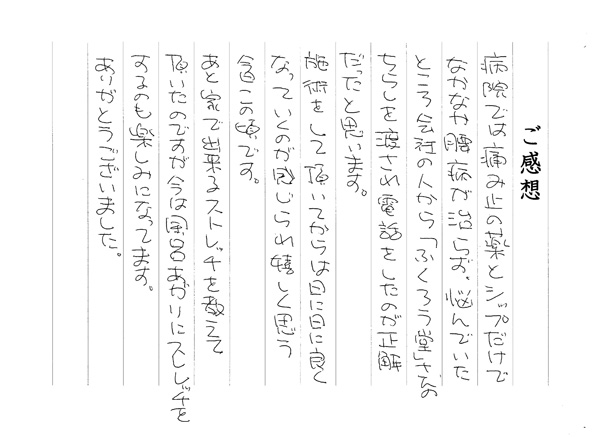 ご感想
病院では痛み止の薬とシップだけで
なかなか腰病が治らず、悩んでいた
ところ会社の人から「ふくろう堂」さんの
ちらしを渡され電話をしたのが正解
だったと思います。
施術をして頂いてからは日に日に良く
なっていくのが感じられ嬉しく思う
今日この頃です。
あと家で出来るストレッチを教えて
頂いたのですが今は風呂あがりにストレッチを
するのも楽しみになってます。
ありがとうございました。